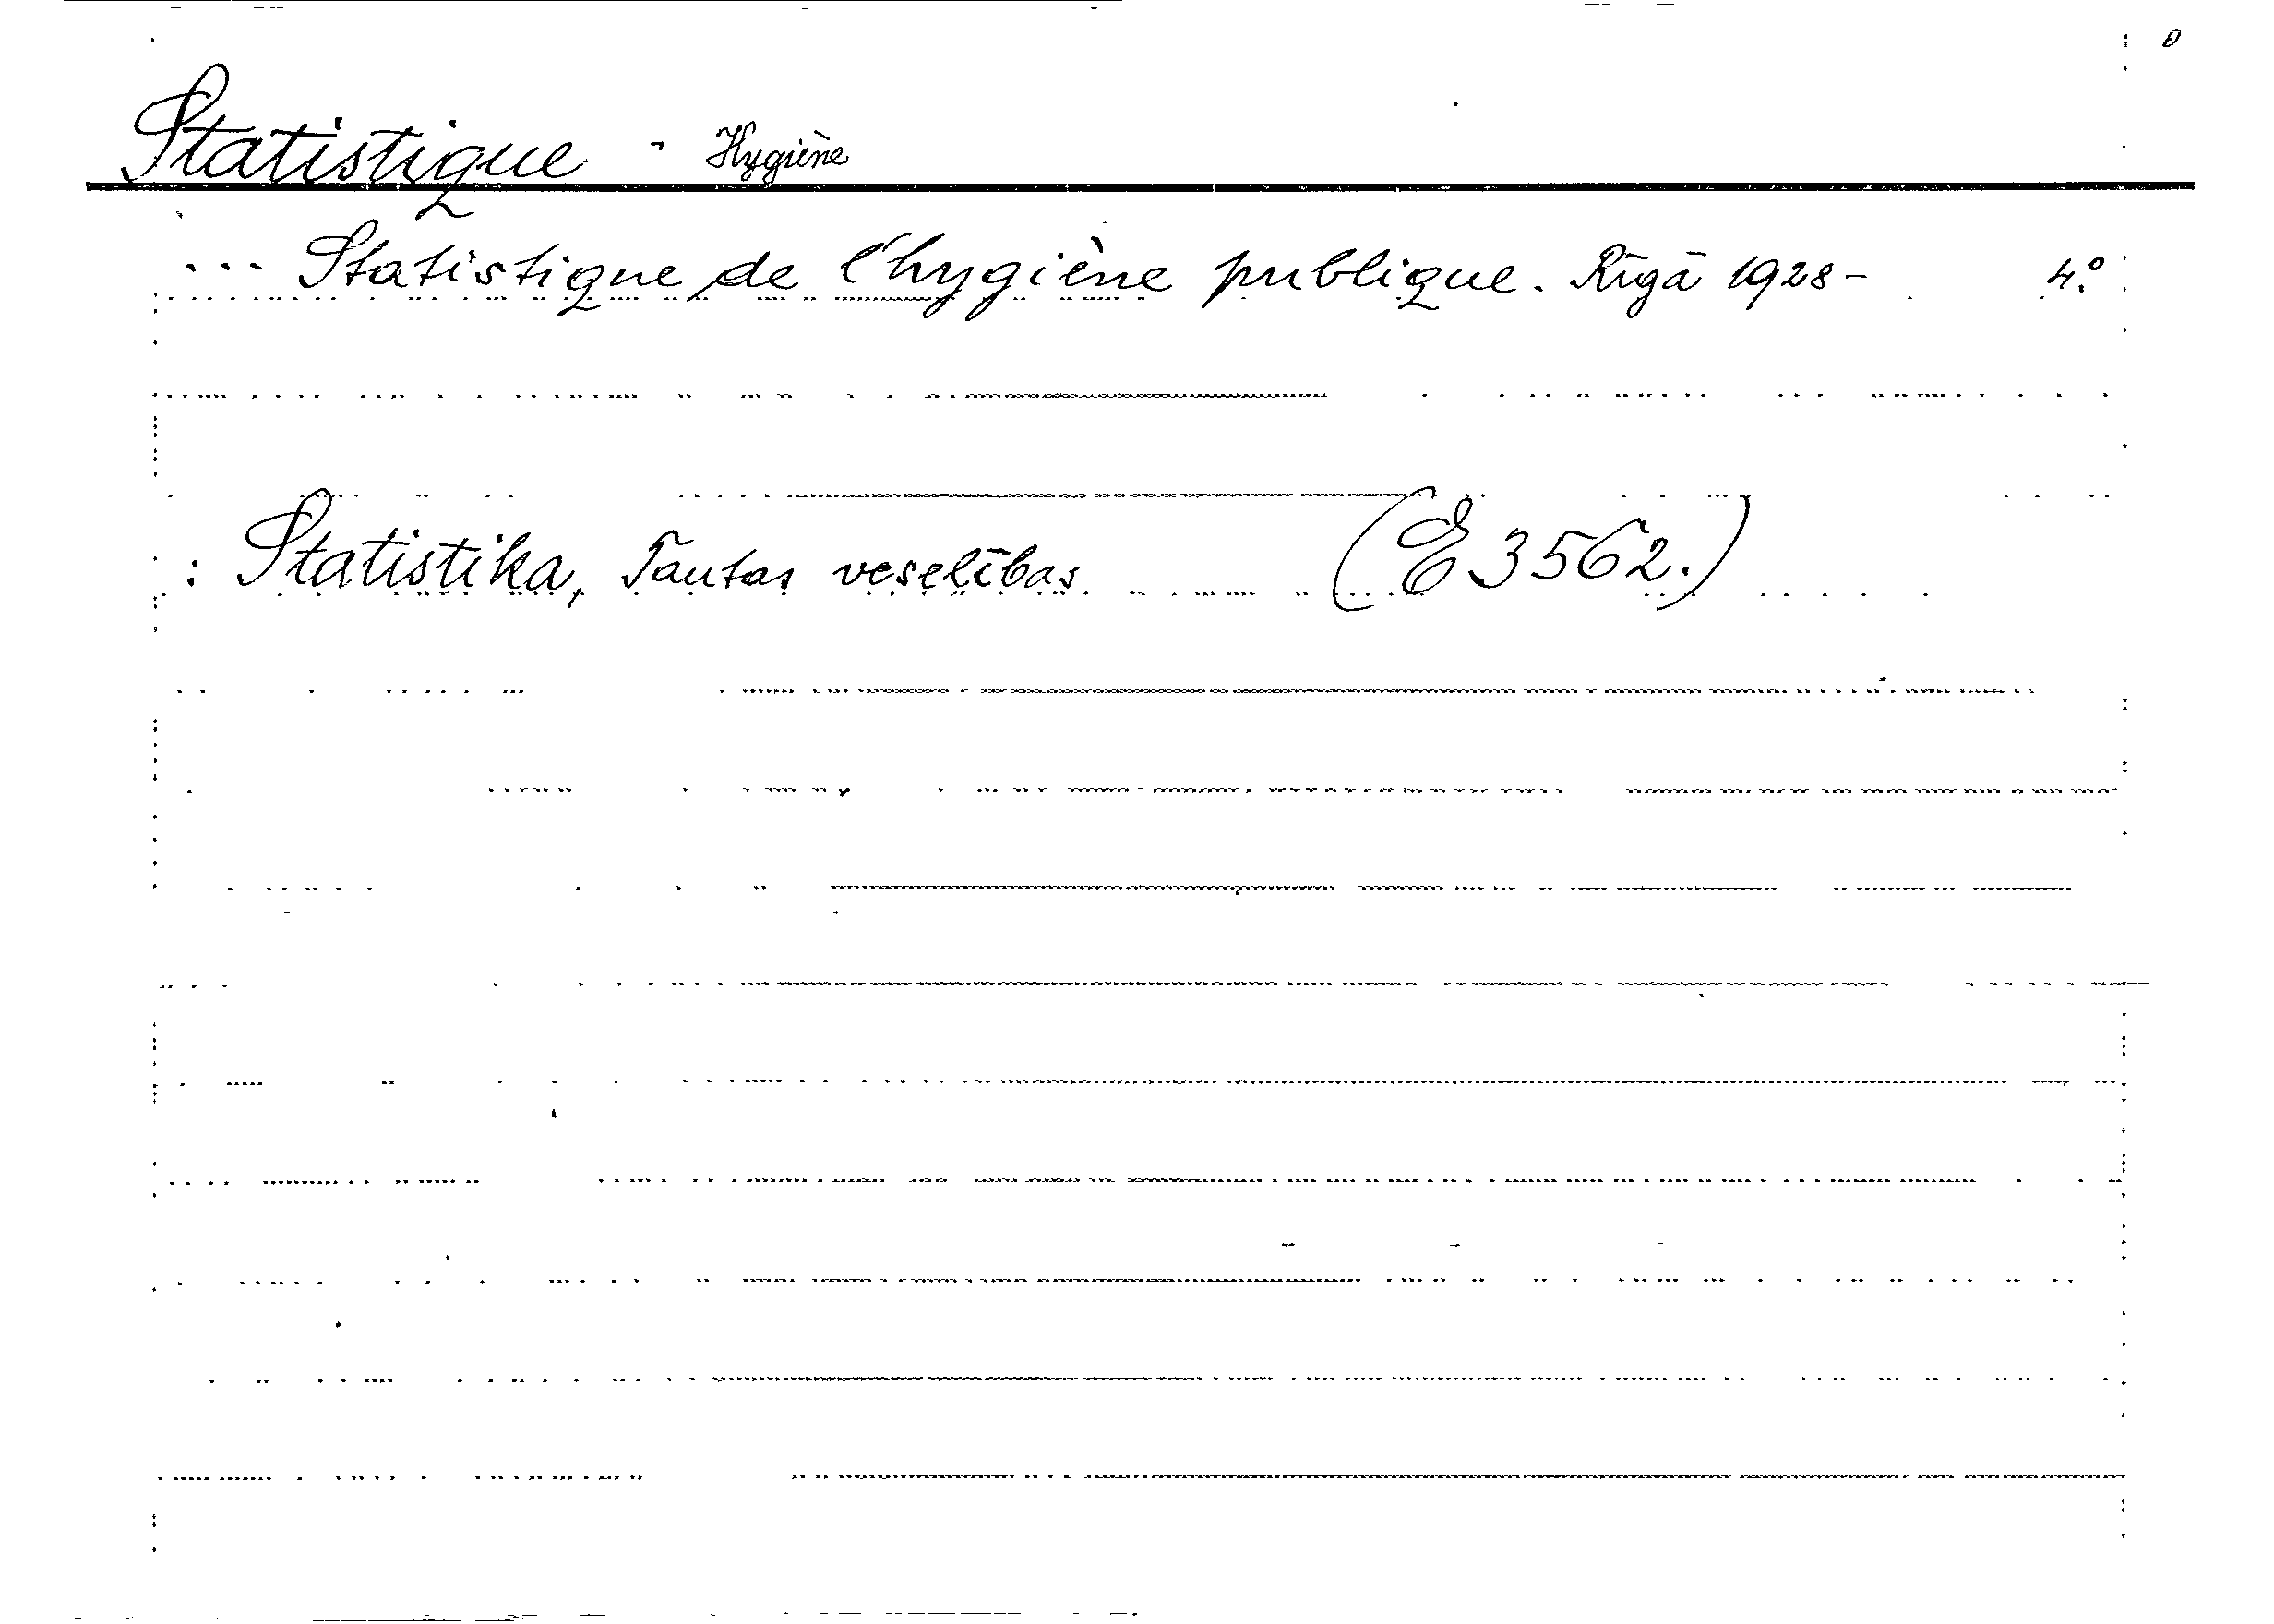 Statistique - Hygiène
... Statistique de l'hygiène publique. Rīgā 1928- 4.°
: Statistika, Tautas veselības (E 3562.)